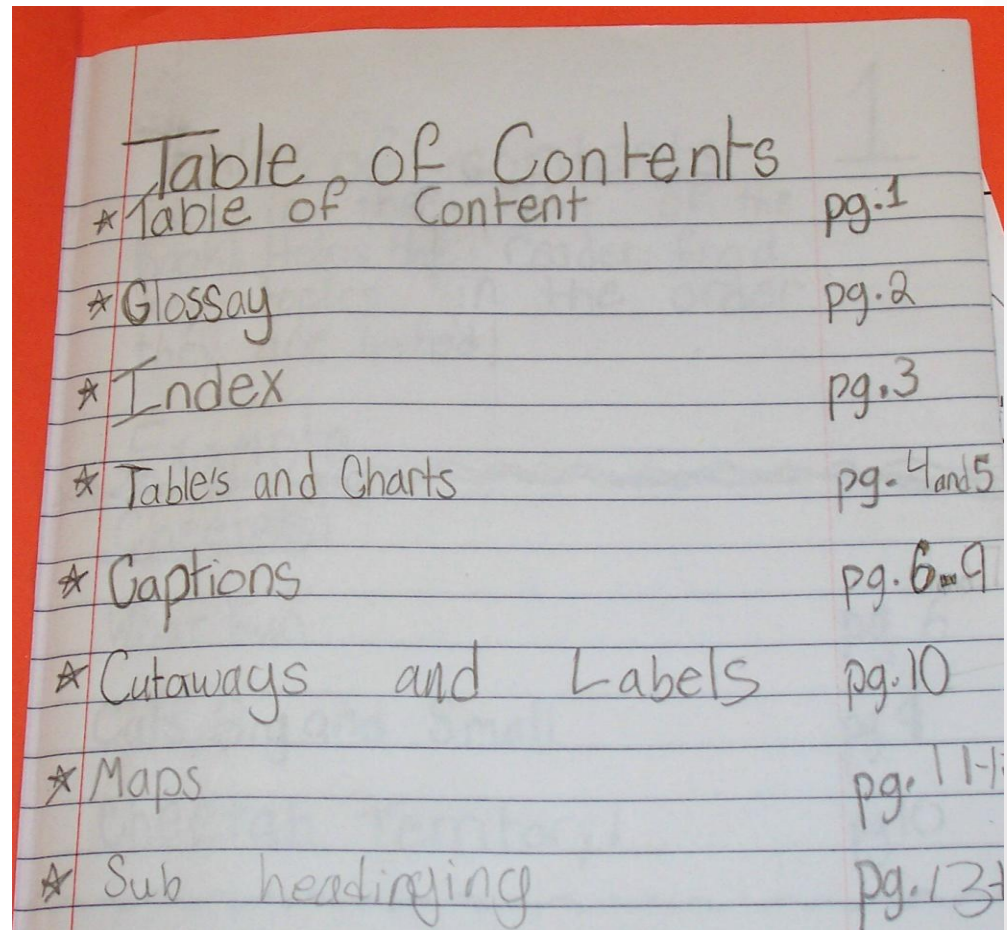 Table of Contents
☆ Table of Content pg.1
☆ Glossay pg.2
☆ Index pg.3
☆ Table's and Charts pg. 4 and 5
☆ Captions pg. 6-9
☆ Cutaways and Labels pg.10
☆ Maps pg. 11-
☆ Sub headinging pg. 13-